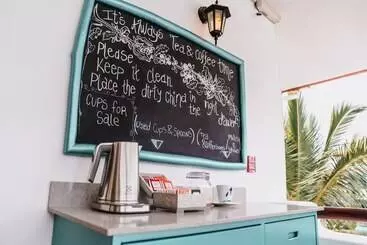 It's Always Tea & Coffee Time
Please
Keep it clean
Place the dirty china in the right
drawer
Cups for
Sale
(Used Cups & Spoons)
Tea